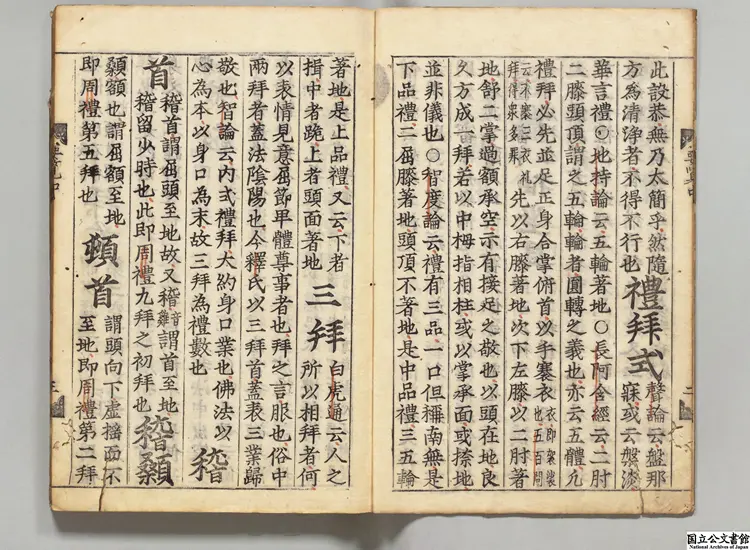 此設恭無乃太簡乎然隨
方為清淨者不得不行也
禮拜式
聲論云盤那
寐或云槃淡
華言禮○地持論云五輪著地○長阿含經云二肘
二膝頭頂謂之五輪輪者圓轉之義也亦云五體凡
禮拜必先並足正身合掌俯首以手褰衣
衣即袈裟
也五百問
云不褰三衣礼
拜得衆多罪
先以右膝著地次下左膝以二肘著
地舒二掌過額承空示有接足之敬也以頭在地良
久方成一拜若以中拇指相柱或以掌承面或捺地
並非儀也○智度論云禮有三品一口但稱南無是
下品禮二屈膝著地頭頂不著地是中品禮三五輪
著地是上品禮又云下者
揖中者跪上者頭面著地
三拜
白虎通云人之
所以相拜者何
以表情見意屈節卑體尊事者也拜之言服也俗中
兩拜者蓋法陰陽也今釋氏以三拜首蓋表三業歸
敬也智論云内式禮拜大約身口業也佛法以
心為本以身口為末故三拜為禮數也
稽首
稽首謂屈頭至地故又稽音雞謂首至地
稽留少時也此即周禮九拜之初拜也
稽顙
顙額也謂屈額至地
即周禮第五拜也
頓首
謂頭向下虚揺面不
至地即周禮第二拜
国立公文書館
National Archives of Japan